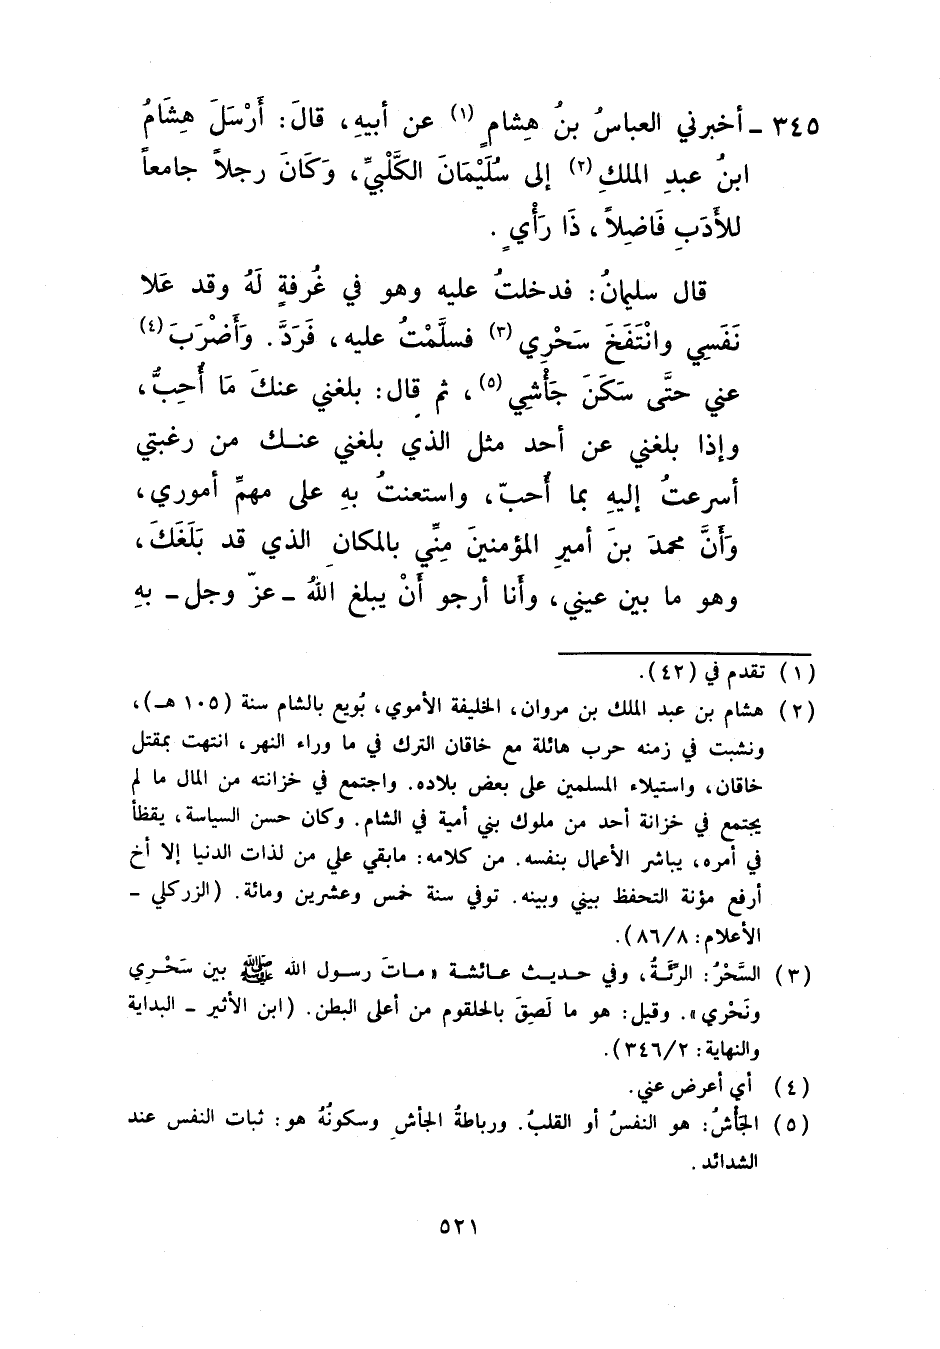 ٣٤٥ ـ أخبرني العباسُ بنُ هِشامٍ (١) عن أبيهِ، قالَ: أَرْسَلَ هِشَامُ
ابنُ عبدِ الملكِ (٢) إلى سُلَيْمَانَ الكَلْبِيِّ، وَكَانَ رجلاً جامعاً
للأَدَبِ فَاضِلاً، ذَا رَأْيٍ .
قال سليمانُ: فدخلتُ عليه وهو في غُرفةٍ لَهُ وقد عَلا
نَفَسِي وانْتَفَخَ سَحْرِي (٣) فسلَّمْتُ عليه، فَرَدَّ. وَأَضْرَبَ (٤)
عني حتَّى سَكَنَ جَأْشِي (٥)، ثم قال: بلغني عنكَ مَا أُحِبُّ،
وإذا بلغني عن أحد مثل الذي بلغني عنـك من رغبتي
أسرعتُ إليهِ بما أُحبّ، واستعنتُ بهِ على مهمِّ أموري،
وَأَنَّ محمدَ بنَ أميرِ المؤمنينَ مِنِّي بالمكانِ الذي قد بَلَغَكَ،
وهو ما بين عيني، وأَنا أرجو أَنْ يبلغ اللهُ ـ عزّ وجل ـ بهِ
(١) تقدم في (٤٢).
(٢) هشام بن عبد الملك بن مروان، الخليفة الأموي، بُويع بالشام سنة (١٠٥ هـ)،
ونشبت في زمنه حرب هائلة مع خاقان الترك في ما وراء النهر، انتهت بمقتل
خاقان، واستيلاء المسلمين على بعض بلاده. واجتمع في خزانته من المال ما لم
يجتمع في خزانة أحد من ملوك بني أمية في الشام. وكان حسن السياسة، يقظاً
في أمره، يباشر الأعمال بنفسه. من كلامه: مابقي علي من لذات الدنيا إلا أخ
أرفع مؤنة التحفظ بيني وبينه. توفي سنة خمس وعشرين ومائة. (الزركلي -
الأعلام: ٨٦/٨).
(٣) السَّحْرُ: الرئَـةُ، وفي حديـث عـائشة «مـاتَ رسـول الله ﷺ بين سَحْـرِي
ونَحْري». وقيل: هو ما لَصِقَ بالحلقوم من أعلى البطن. (ابن الأثير - البداية
والنهاية: ٣٤٦/٢).
(٤) أي أعرض عني.
(٥) الجَأْشُ: هو النفسُ أو القلبُ. ورباطةُ الجأشِ وسكونُهُ هو: ثبات النفس عند
الشدائد.
٥٢١